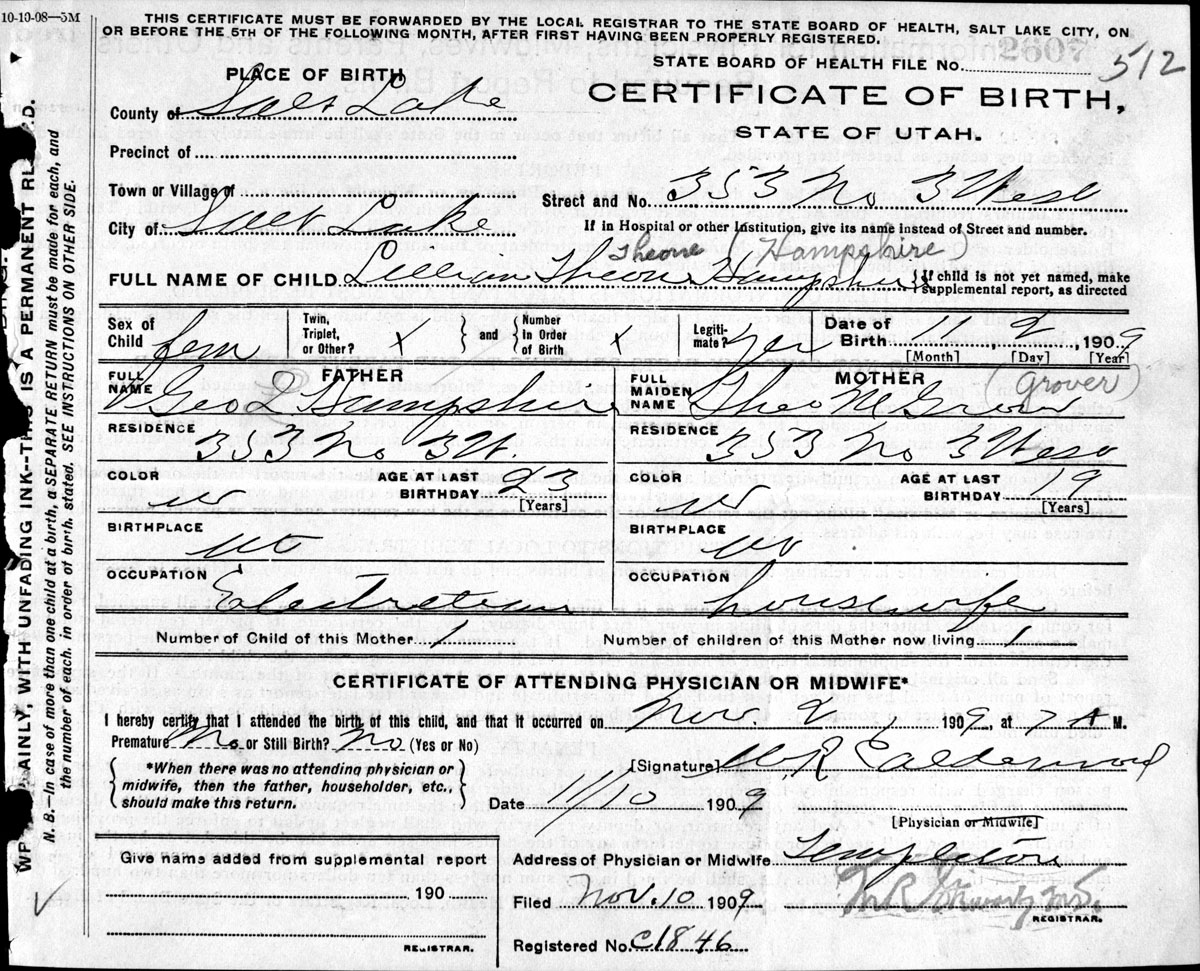 10-10-08—5M
THIS CERTIFICATE MUST BE FORWARDED BY THE LOCAL REGISTRAR TO THE STATE BOARD OF HEALTH, SALT LAKE CITY, ON
OR BEFORE THE 5TH OF THE FOLLOWING MONTH, AFTER FIRST HAVING BEEN PROPERLY REGISTERED.
STATE BOARD OF HEALTH FILE NO. 2607 512
PLACE OF BIRTH
CERTIFICATE OF BIRTH,
STATE OF UTAH.
County of Salt Lake
Precinct of
Town or Village of
Street and No. 353 No 3 West
City of Salt Lake
If in Hospital or other Institution, give its name instead of Street and number.
Theone Hampshire)
FULL NAME OF CHILD Lillian Theon Hampshire { If child is not yet named, make
supplemental report, as directed
Sex of Child fem
Twin, Triplet, or Other? X } and { Number In Order of Birth X
Legiti-mate? yes
Date of Birth 11 2 1909
[Month] [Day] [Year]
FATHER
FULL NAME Geo L Hampshire
MOTHER (Grover)
FULL MAIDEN NAME Theo M Grow
RESIDENCE 353 No 3 W.
RESIDENCE 353 No 3 West
COLOR W AGE AT LAST BIRTHDAY 23 [Years]
COLOR W AGE AT LAST BIRTHDAY 19 [Years]
BIRTHPLACE Ut
BIRTHPLACE
OCCUPATION Electretion
OCCUPATION housewife
Number of Child of this Mother 1
Number of children of this Mother now living 1
CERTIFICATE OF ATTENDING PHYSICIAN OR MIDWIFE*
I hereby certify that I attended the birth of this child, and that it occurred on Nov. 2, 1909, at 7 A M.
Premature No or Still Birth? No (Yes or No)
{ *When there was no attending physician or
midwife, then the father, householder, etc.,
should make this return. }
[Signature] W R Calderwood
Date 11/10 1909
[Physician or Midwife]
Give name added from supplemental report
190
REGISTRAR.
Address of Physician or Midwife Templeton
Filed Nov. 10 1909
REGISTRAR.
Registered No. c1846
AINLY, WITH UNFADING INK—THIS IS A PERMANENT
N. B.—In case of more than one child at a birth, a SEPARATE RETURN must be made for each, and
the number of each, in order of birth, stated. SEE INSTRUCTIONS ON OTHER SIDE.